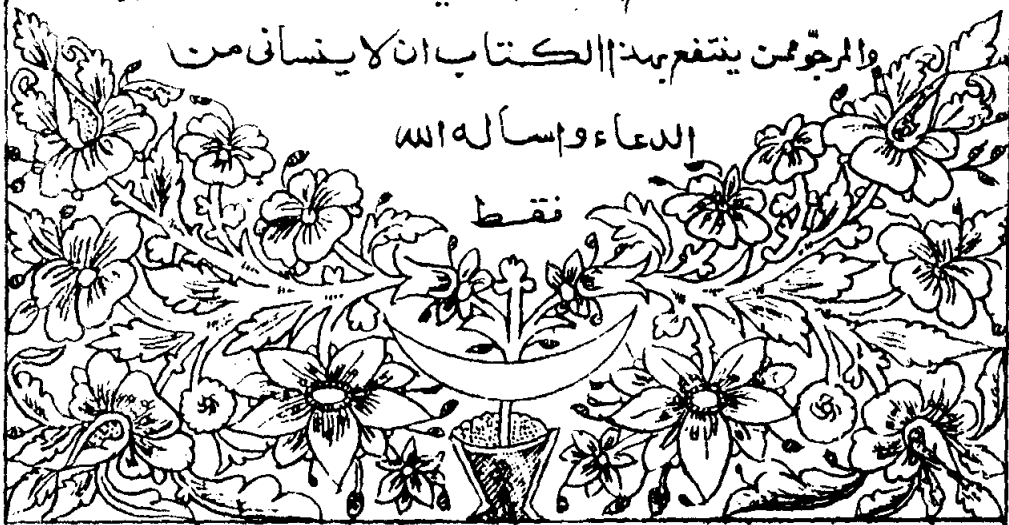 والمرجوّ ممن ينتفع بهذا الكتاب ان لا ينسانى من
الدعاء واسأله الله
فقط